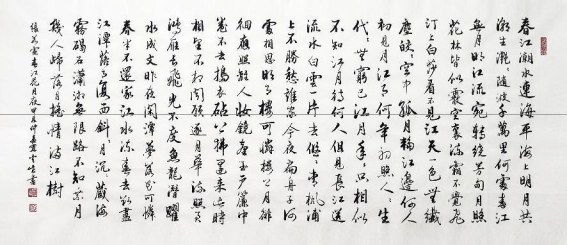 春江潮水連海平海上明月共
潮生灧々隨波千萬里何處春江
無月明江流宛轉繞芳甸月照
花林皆似霰空裏流霜不覺飛
汀上白沙看不見江天一色無纖
塵皎々空中孤月輪江邊何人
初見月江月何年初照人人生
代々無窮已江月年々只相似
不知江月待何人但見長江送
流水白雲一片去悠々青楓浦
上不勝愁誰家今夜扁舟子何
處相思明月樓可憐樓上月徘
徊應照離人妝鏡臺玉戶簾中
卷不去搗衣砧上拂還來此時
相望不相聞願逐月華流照君
鴻雁長飛光不度魚龍潛躍
水成文昨夜閑潭夢落花可憐
春半不還家江水流春去欲盡
江潭落月復西斜斜月沉々藏海
霧碣石瀟湘無限路不知乘月
幾人歸落月搖情滿江樹
張若虛春江花月夜